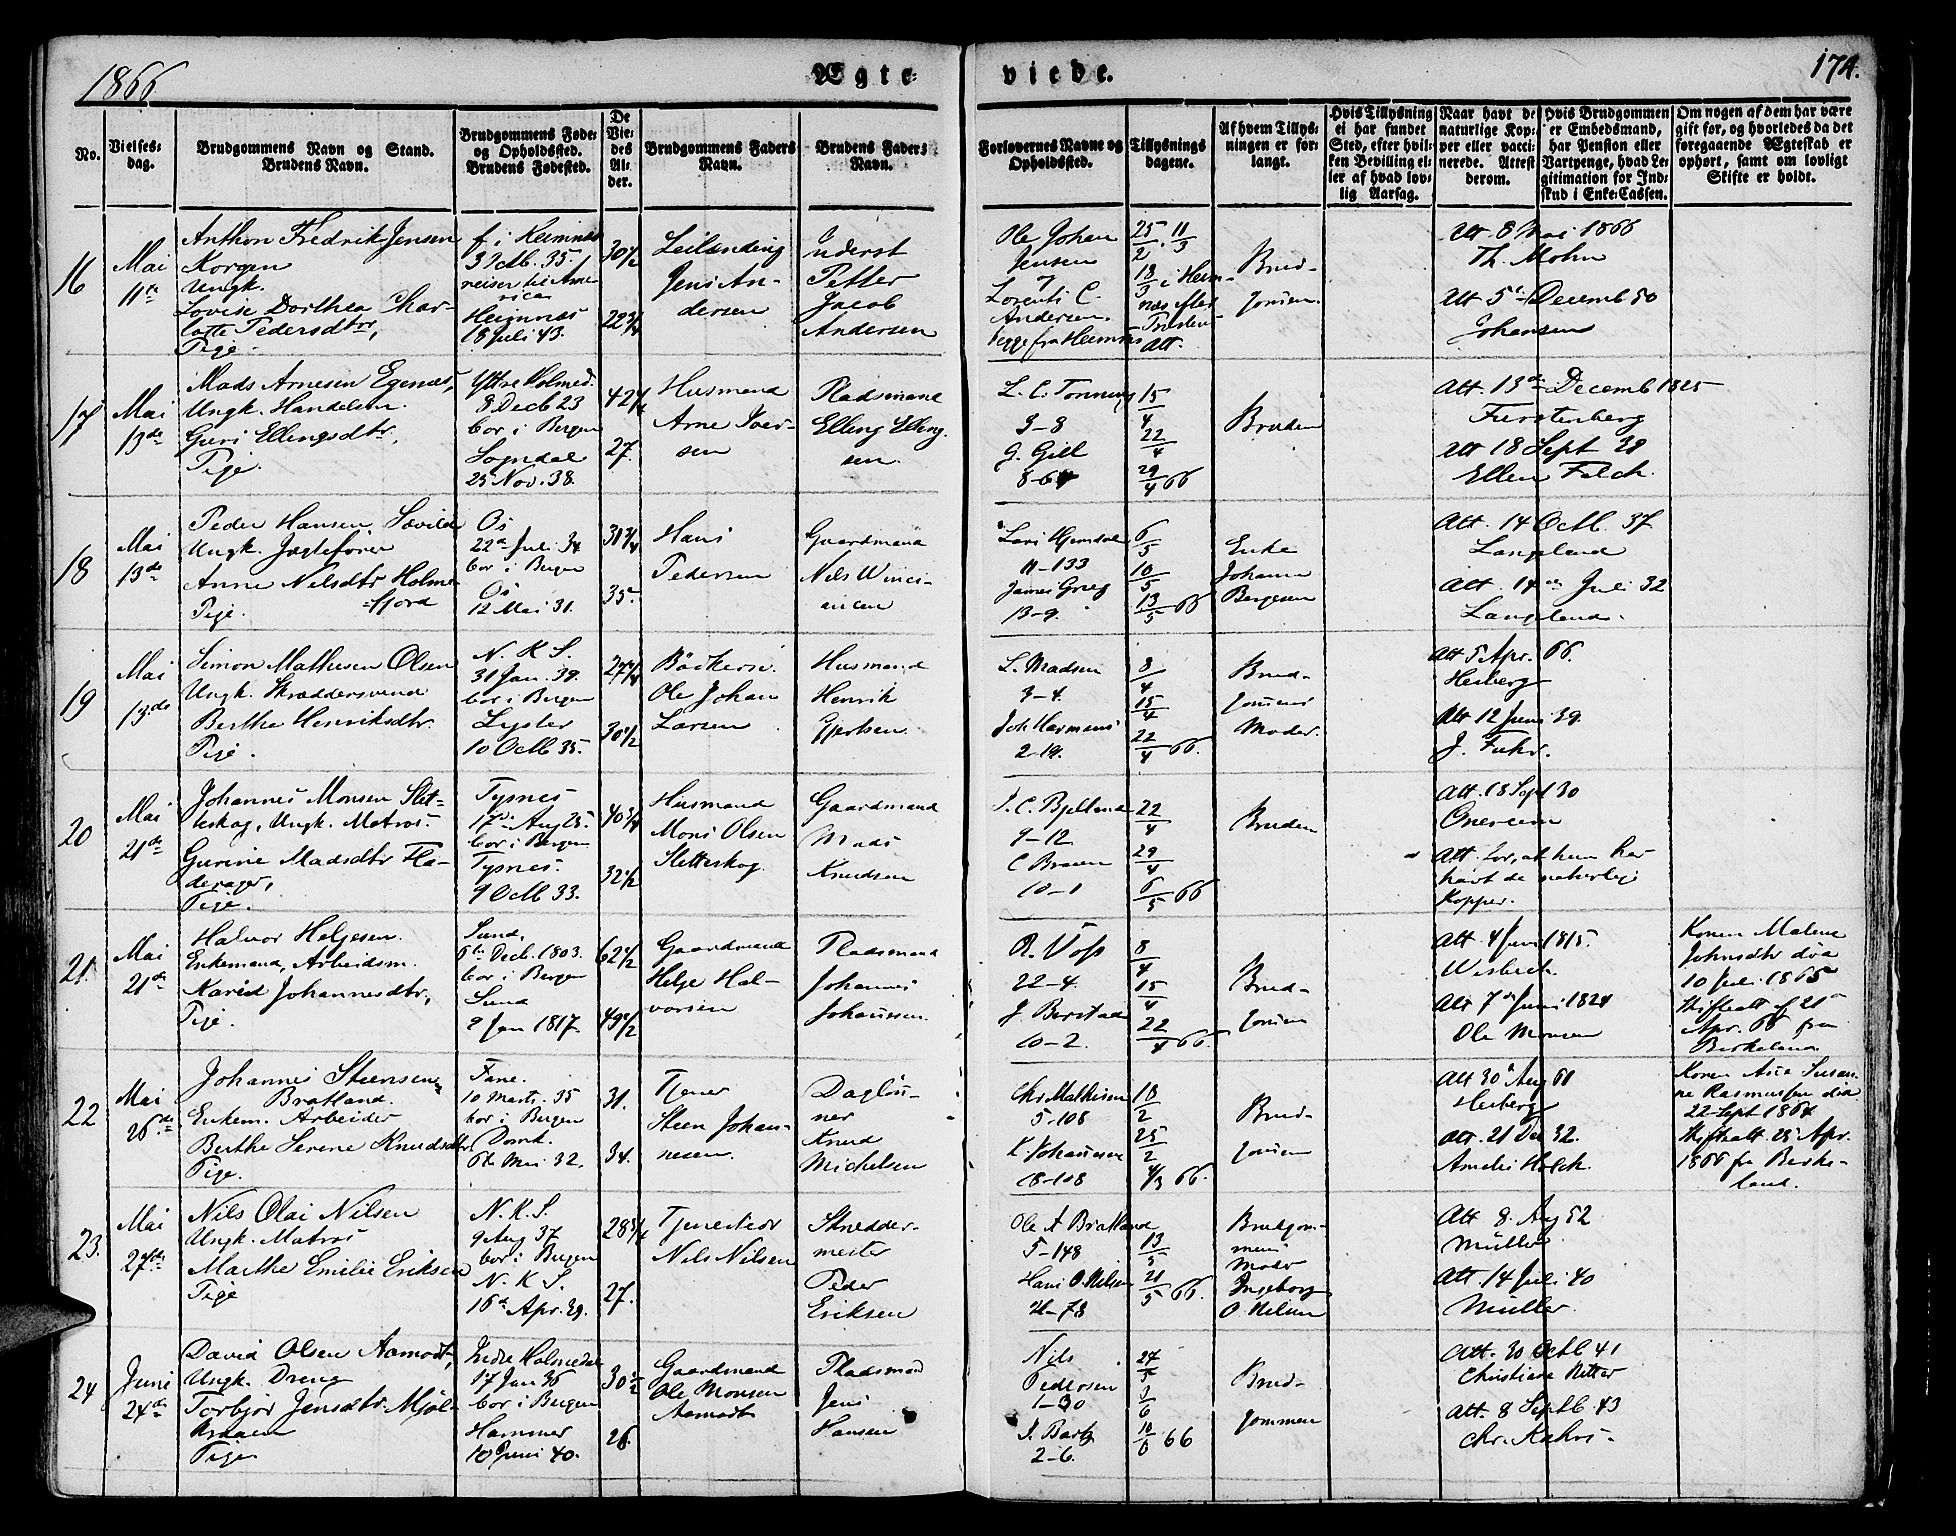 1866
Ægte-
viede.
174.
No.
Vielses-
dag.
Brudgommens Navn og Stand.
Brudens Navn.
Brudgommens Føde-
og Opholdssted.
Brudens Fødested.
De
Vie-
des
Al-
der.
Brudgommens Faders
Navn.
Brudens Faders
Navn.
Forlovernes Navne og
Opholdssted.
Tillysnings
dagene.
Af hvem Tillys-
ningen er for-
langt.
Hvis Tillysning
ei har fundet
Sted, efter hvil-
ken Bevilling el-
ler af hvad lov-
lig Aarsag.
Naar havt de
naturlige Kop-
per eller vacci-
nerede. Attest
derom.
Hvis Brudgommen
er Embedsmand,
har Pension eller
Vartpenge, hvad Le-
gitimation for Ind-
skud i Enke-Cassen.
Om nogen af dem har være
gift før, og hvorledes da det
foregaaende Ægteskab er
ophørt, samt om lovligt
Skifte er holdt.
16
Mai
11te
Anthon Fredrik Jensen
Korgen
Ungk.
Lovise Dorthea Char-
lotte Pedersdtr,
Pige.
f. i Hemnæs
3 Octb. 35.
reiser til Ame-
rica
Hemnæs
18 Juli 43.
30 1/2
22 3/4
Leilænding
Jens An-
dersen
Inderst
Petter
Jacob
Andersen
Ole Johan
Jensen
Lorents C.
Andersen
begge fra Hemnæs
25/2 . 11/3
18/3 i Hem-
næs efter
Præstens
Att.
Brud-
gommen.
Att. 8 Mai 1866
Th. Mohn
Att 5te Decemb 50
Johansen
17
Mai
13de
Mads Arnesen Egenæs,
Ungk. Handelsm.
Guri Ellingsdtr,
Pige.
Yttre Holmed.
8 Decb 23
bor i Bergen
Sogndal
25 Nov. 38.
42 1/4
27.
Husmand
Arne Iver-
sen
Pladsmand
Elling Elling-
sen.
L. C. Tonning
3-8
J. Gill
8-64
15/4
22/4
29/4 66
Bruden
Att. 13de Decemb 1825
Furstenberg
Att 18 Sept 39
Ellen Falch.
18
Mai
13de
Peder Hansen Søvild
Ungk. Jægtefører
Anne Nilsdtr Holme-
fjord
Pige.
Os
22de Juli 34
bor i Bergen
Os
12 Mai 31.
31 3/4
35.
Hans
Pedersen
Gaardmand
Nils Winci-
ancen
Lars Hjemdal
11-133
James Greg
13-9.
6/5
10/5
13/5 66
Enke
Johanna
Bergesen
Att. 14 Octb. 37
Langeland
Att. 14de Juli 32
Langeland.
19
Mai
13de
Simon Mathiesen Olsen
Ungk. Skræddersvend
Berthe Henriksdtr.
Pige.
N. K. S.
31 Jan. 39.
bor i Bergen
Lyster
10 Octb 35.
27 1/4
30 1/2
Bødkersv.
Ole Johan
Larsen
Husmand
Henrik
Gjertsen.
L. Madsen
3-4.
Joh Harmens
2-19.
8/4
15/4
22/4 66.
Brud-
gommens
Moder.
Att 5 Apr. 66.
Heiberg
Att 12 Juni 39.
J. Fuhr.
20
Mai
21de
Johannes Monsen Slet-
teskog, Ungk. Matros.
Gurine Madsdtr Fla-
derager,
Pige.
Tysnes
17de Aug 25.
bor i Bergen
Tysnes.
9 Octb 33.
40 3/4
32 1/2
Husmand
Mons Olsen
Sletteskog
Gaardmand
Mads
Knudsen
9-12
10-1
22/4
29/4
6/5 66
Bruden
Att. 18 Sept 30
Att. for, at hun har
havt de naturlige
Kopper.
21.
Mai
21de
Halvor Helgesen.
Enkemand, Arbeidsm.
Karid Johannesdtr,
Pige.
Sund.
6te Decb. 1803.
bor i Bergen
Sund
2 Jan 1817.
62 1/2
49 1/2
Gaardmand
Helge Hal-
vorsen
Pladsmand
Johannes
Johansen.
R. Voss
22-4.
10-2.
8/4
15/4
22/4 66.
Brud-
gommen
Att. 4 Juni 1815.
Wesbech.
Att 7de Juni 1824
Ole Monsen
Konen Malene
Johnsdtr død
10 Juli 1865
Skifteatt af 21de
Apr. 66 fra
Berkeland.
22
Mai
26de
Johannes Steensen
Bratland.
Enkem. Arbeider
Berthe Serene Knudsdtr
Pige.
Fane.
10 Marts. 35
bor i Bergen
Domk.
6te Mai 32.
31.
34.
Tjener
Steen Johan-
nesen.
Dagløn-
ner
Knud
Michelsen
Chr Mathisen
5-108
K. Johannesen
8-108
18/2
25/2
4/3 66.
Brud-
gommen
Att 30 Aug 61
Heiberg
Att. 21 Dec 32.
Amelie Holck.
Konen Susan-
ne Rasmusson død
22 Sept 1864
Skifteatt. 25 Apr.
1866 fr Berke-
land.
23.
Mai
27de
Nils Olai Nilsen
Ungk. Matros
Marthe Emilie Eriksen
Pige
N. K. S.
9 Aug 37
bor i Bergen
N. K. S.
16de Apr. 39.
28 3/4
27.
Tjenestkar
Nils Nilsen
Skredder-
mester
Peder
Eriksen
Ole A Bratland
5-148
Hans O. Nilsen
21-78
13/5
21/5 66.
Brudgom-
mens
Moder
Ingeborg
O. Nilsen
Att 8. Aug 52
Müller
Att. 14 Juli 40
Müller.
24
Juni
24de
David Olsen Aamodt,
Ungk. Dreng
Torbjør Jensdtr Mjøl-
Pige.
Indre Holmedal
17 Jan 36
bor i Bergen
Hammer
10 Juni 40.
30 1/2
26.
Gaardmand
Ole Monsen
Aamodt
Pladsmand
Jens
Hansen
Nils
Pedersen
1-30
2-6.
27/5
3/6
10/6 66
Brud-
gommen
Att. 30 Octb 41
Christiane Ritter
Att. 8 Septb 43
Chr. Kahrs.